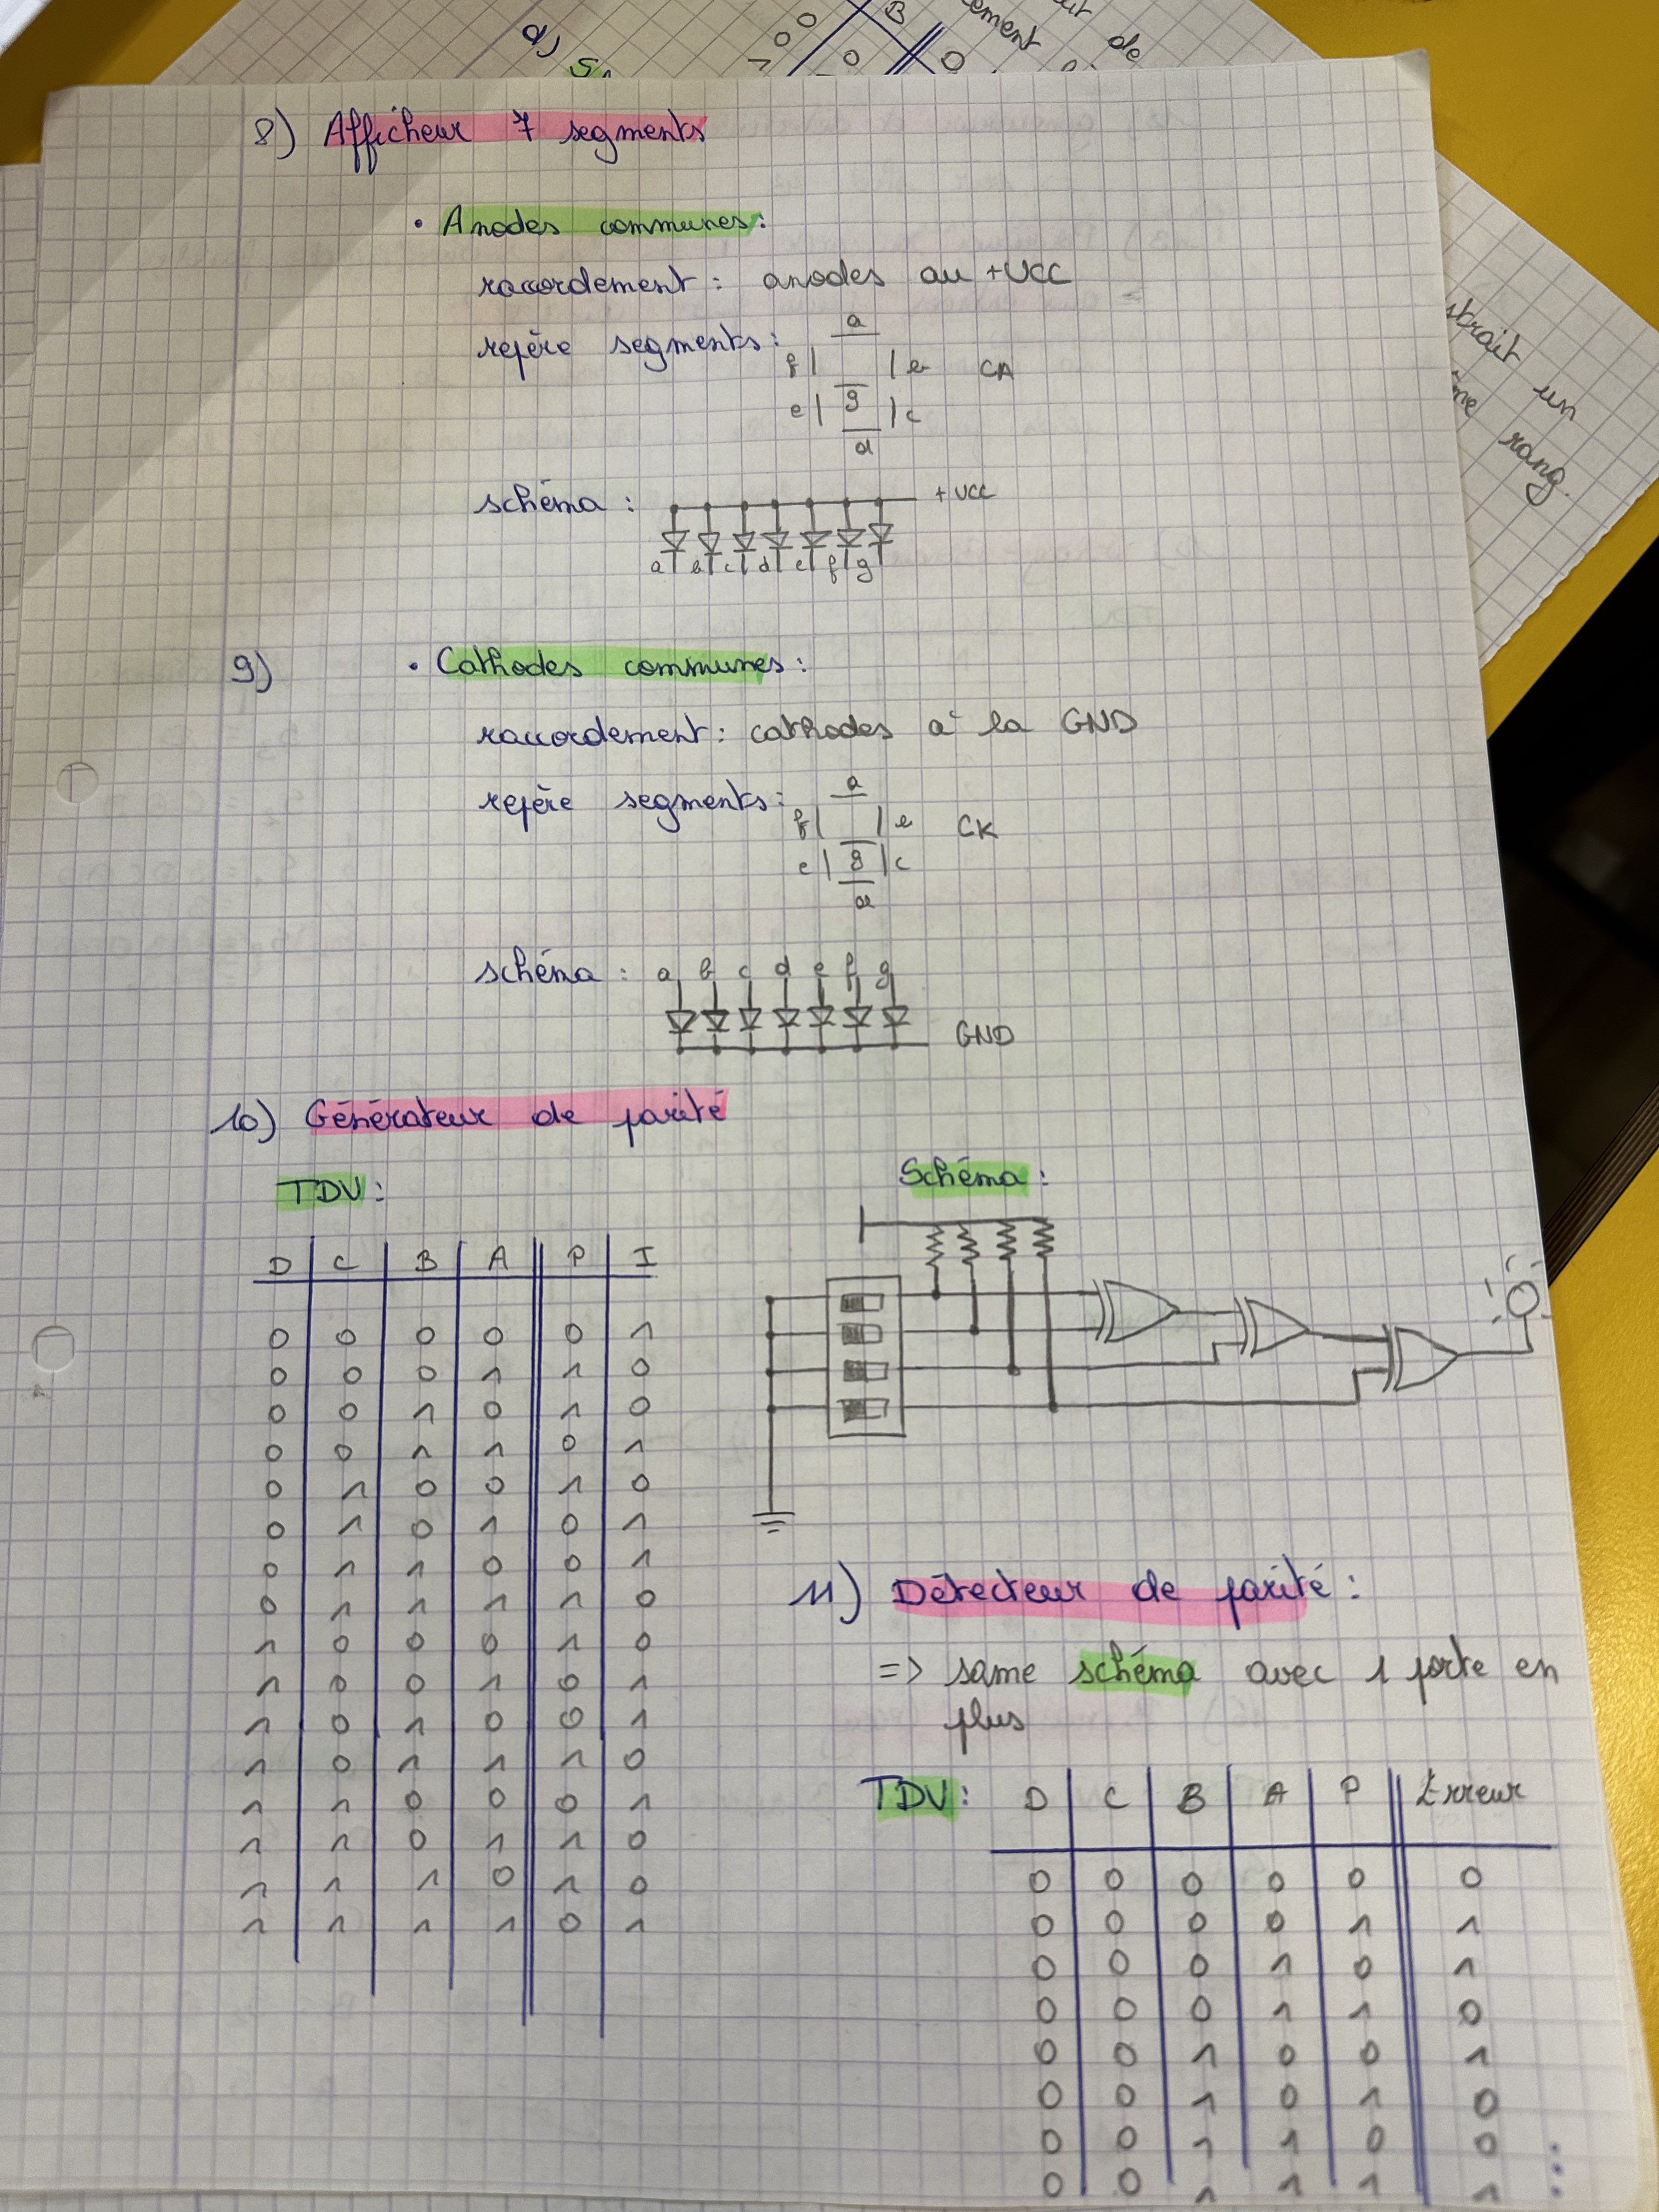 d)
B
0
0
1
0
0
ement
de
strait un
rang.
8) Afficheur 7 segments
• Anodes communes:
racordement: anodes au +UCC
repère segments:
a
f b CA
e g c
d
schéma: +UCC
a b c d e f g
9) • Cathodes communes:
raccordement: cathodes à la GND
repère segments:
a
f e CK
e g c
d
schéma: a b c d e f g
GND
10) Générateur de parité
TDV:
Schéma:
D C B A P I
0 0 0 0 0 1
0 0 0 1 1 0
0 0 1 0 1 0
0 0 1 1 0 1
0 1 0 0 1 0
0 1 0 1 0 1
0 1 1 0 0 1
0 1 1 1 1 0
1 0 0 0 1 0
1 0 0 1 0 1
1 0 1 0 0 1
1 0 1 1 1 0
1 1 0 0 0 1
1 1 0 1 1 0
1 1 1 0 1 0
1 1 1 1 0 1
11) Détecteur de parité:
=> same schéma avec 1 porte en
plus
TDV: D C B A P Erreur
0 0 0 0 0 0
0 0 0 0 1 1
0 0 0 1 0 1
0 0 0 1 1 0
0 0 1 0 0 1
0 0 1 0 1 0
0 0 1 1 0 0
0 0 1 1 1 1